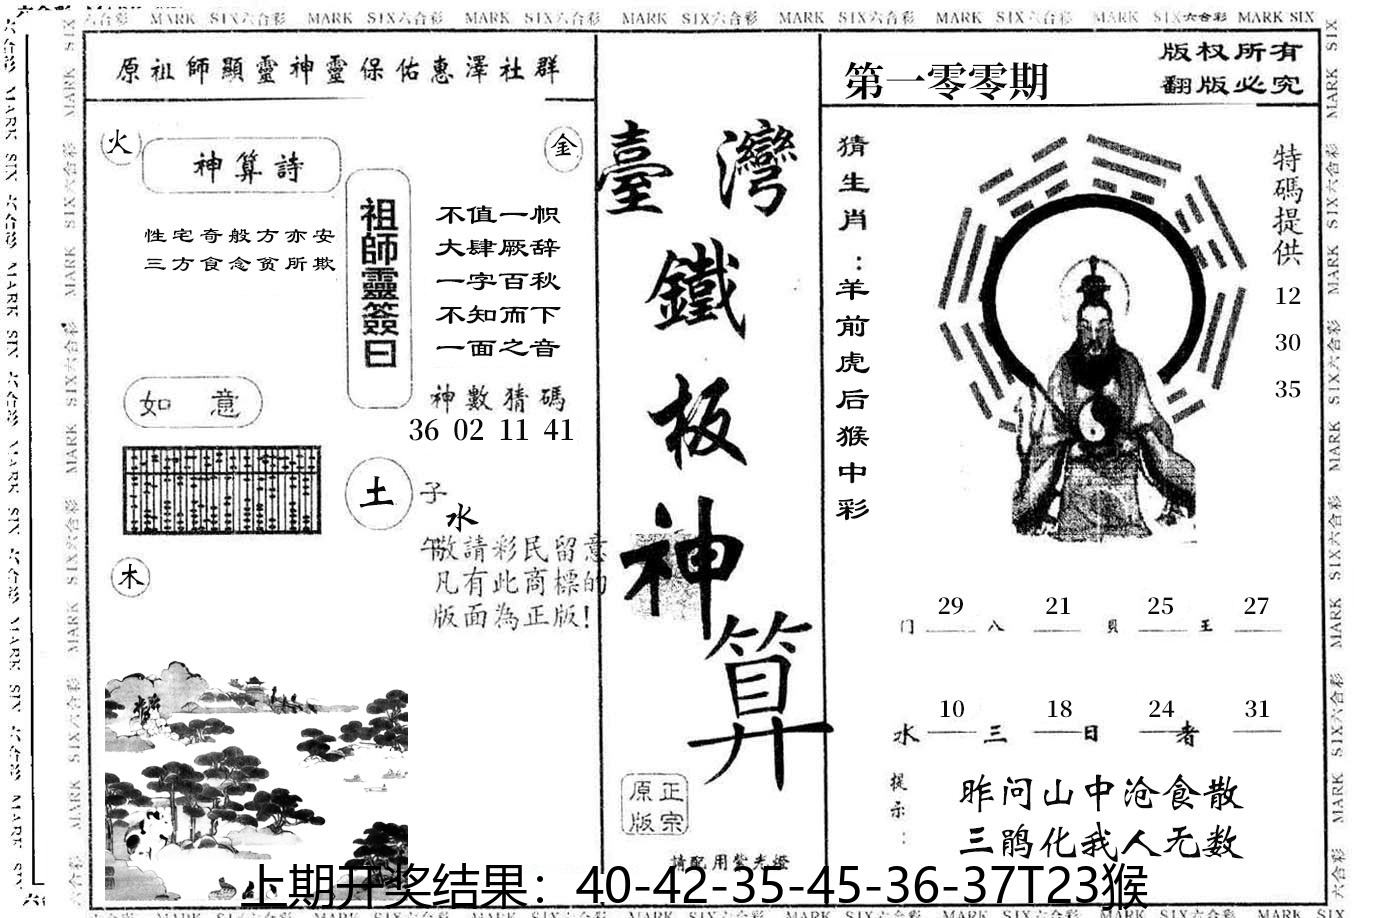 六合彩 MARK SIX六合彩 MARK SIX六合彩 MARK SIX六合彩 MARK SIX六合彩 MARK SIX六合彩 MARK SIX六合彩 MARK SIX六合彩 MARK SIX
原祖師顯靈神靈保佑惠澤社群
火
金
神算詩
性宅奇般方亦安
三方食念贫所欺
祖師靈簽曰
不值一帜
大肆厥辞
一字百秋
不知而下
一面之音
神數猜碼
36 02 11 41
如 意
土
子
水
午
敬請彩民留意
凡有此商標的
版面為正版!
木
臺灣
鐵
板
神
算
正宗
原版
請配用紫光燈
第一零零期
版权所有
翻版必究
猜生肖:羊前虎后猴中彩
特碼提供
12
30
35
门 29 八 21 貝 25 王 27
水 10 三 18 日 24 者 31
提示:
昨问山中沧食散
三鹃化我人无数
上期开奖结果：40-42-35-45-36-37T23猴